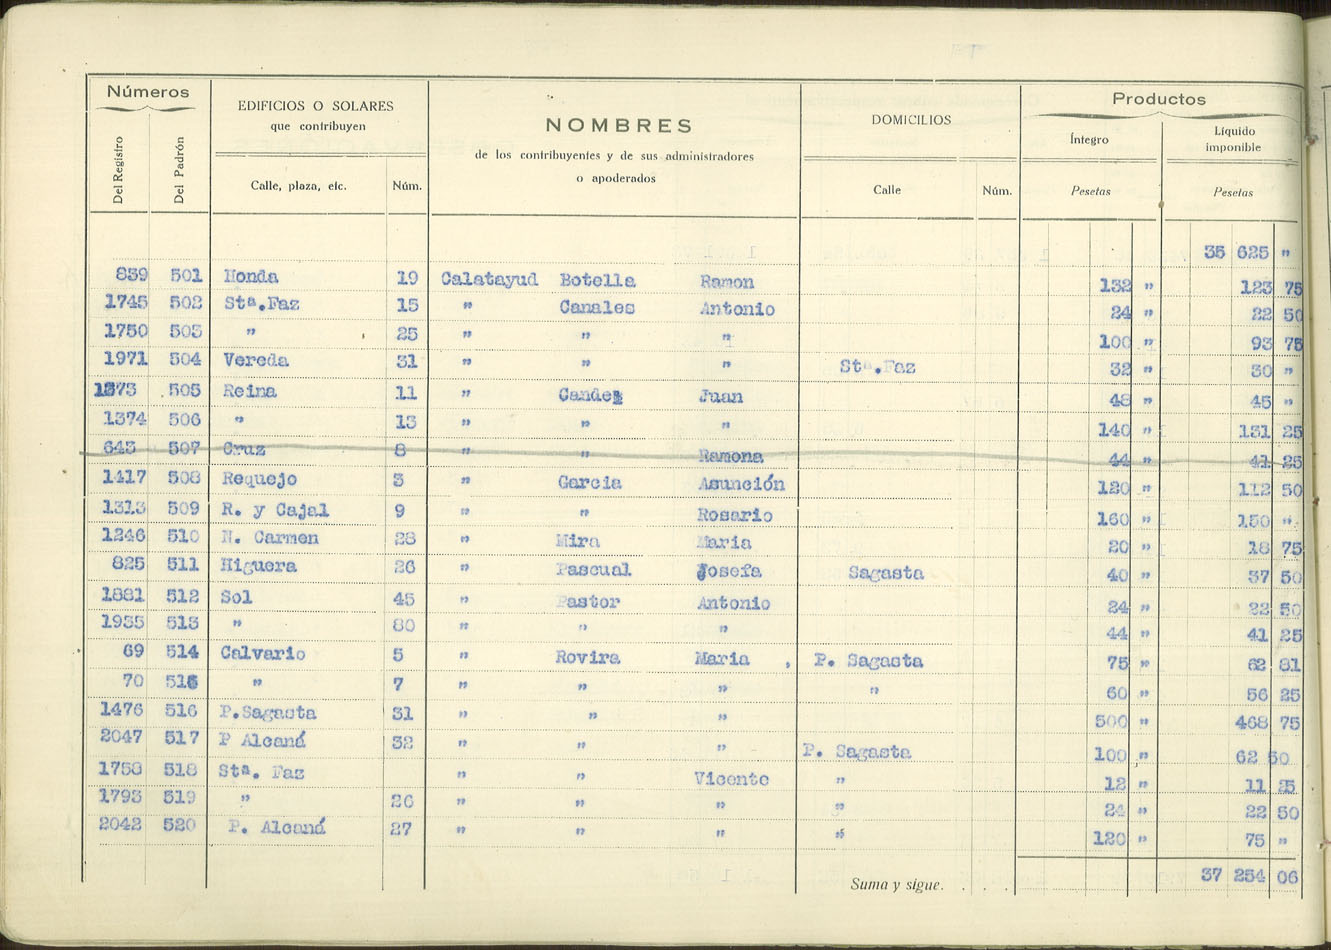 Números
EDIFICIOS O SOLARES
que contribuyen
NOMBRES
de los contribuyentes y de sus administradores
o apoderados
DOMICILIOS
Productos
Íntegro
Líquido
imponible
Del Registro Del Padrón Calle, plaza, etc. Núm. Calle Núm. Pesetas Pesetas
35 625 "
859 501 Honda 19 Calatayud Botella Ramon 132 " 123 75
1745 502 Stª.Faz 15 " Canales Antonio 24 " 22 50
1750 503 " 25 " " " 100 " 93 75
1971 504 Vereda 31 " " " Stª.Faz 32 " 30 "
1373 505 Reina 11 " Candez Juan 48 " 45 "
1374 506 " 13 " " " 140 " 131 25
643 507 Cruz 8 " " Ramona 44 " 41 25
1417 508 Requejo 3 " Garcia Asunción 120 " 112 50
1313 509 R. y Cajal 9 " " Rosario 160 " 150 "
1246 510 N. Carmen 28 " Mira Maria 20 " 18 75
825 511 Higuera 26 " Pascual Josefa Sagasta 40 " 37 50
1881 512 Sol 45 " Pastor Antonio 24 " 22 50
1935 513 " 80 " " " 44 " 41 25
69 514 Calvario 5 " Rovira Maria , P. Sagasta 75 " 62 81
70 515 " 7 " " " " 60 " 56 25
1476 516 P.Sagasta 31 " " " 500 " 468 75
2047 517 P Alcaná 32 " " " P. Sagasta 100 " 62 50
1758 518 Stª. Faz " " Vicente " 12 " 11 25
1793 519 " 26 " " " " 24 " 22 50
2042 520 P. Alcaná 27 " " " " 120 " 75 "
Suma y sigue. . . . . 37 254 06